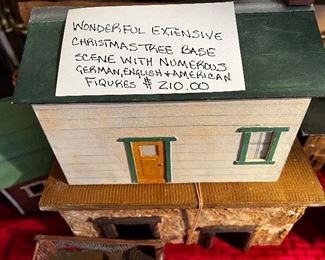 WONDERFUL EXTENSIVE
CHRISTMAS TREE BASE
SCENE WITH NUMEROUS
GERMAN, ENGLISH & AMERICAN
FIGURES $ 210.00